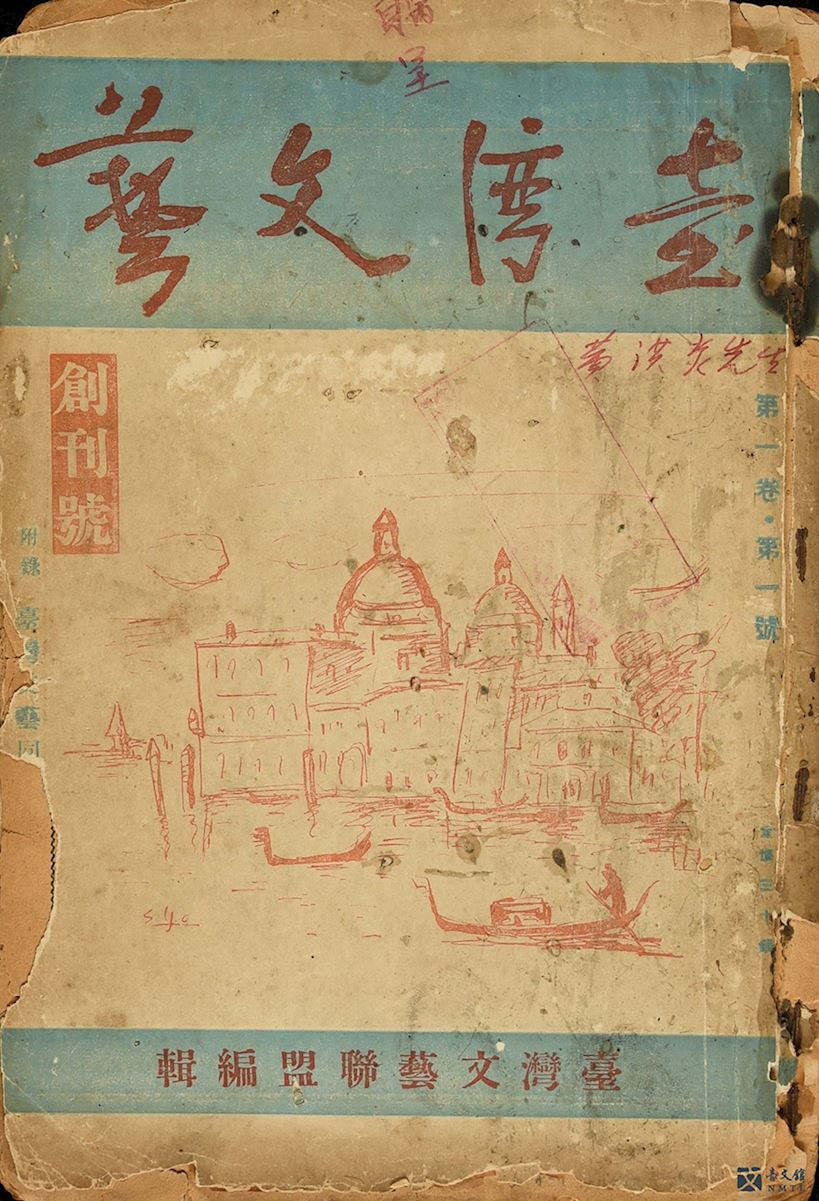 呈
臺灣文藝
黃洪炎先生
創刊號
第一卷・第一號
附錄
定價三十錢
syc
臺灣文藝聯盟編輯
臺文館
NMTL